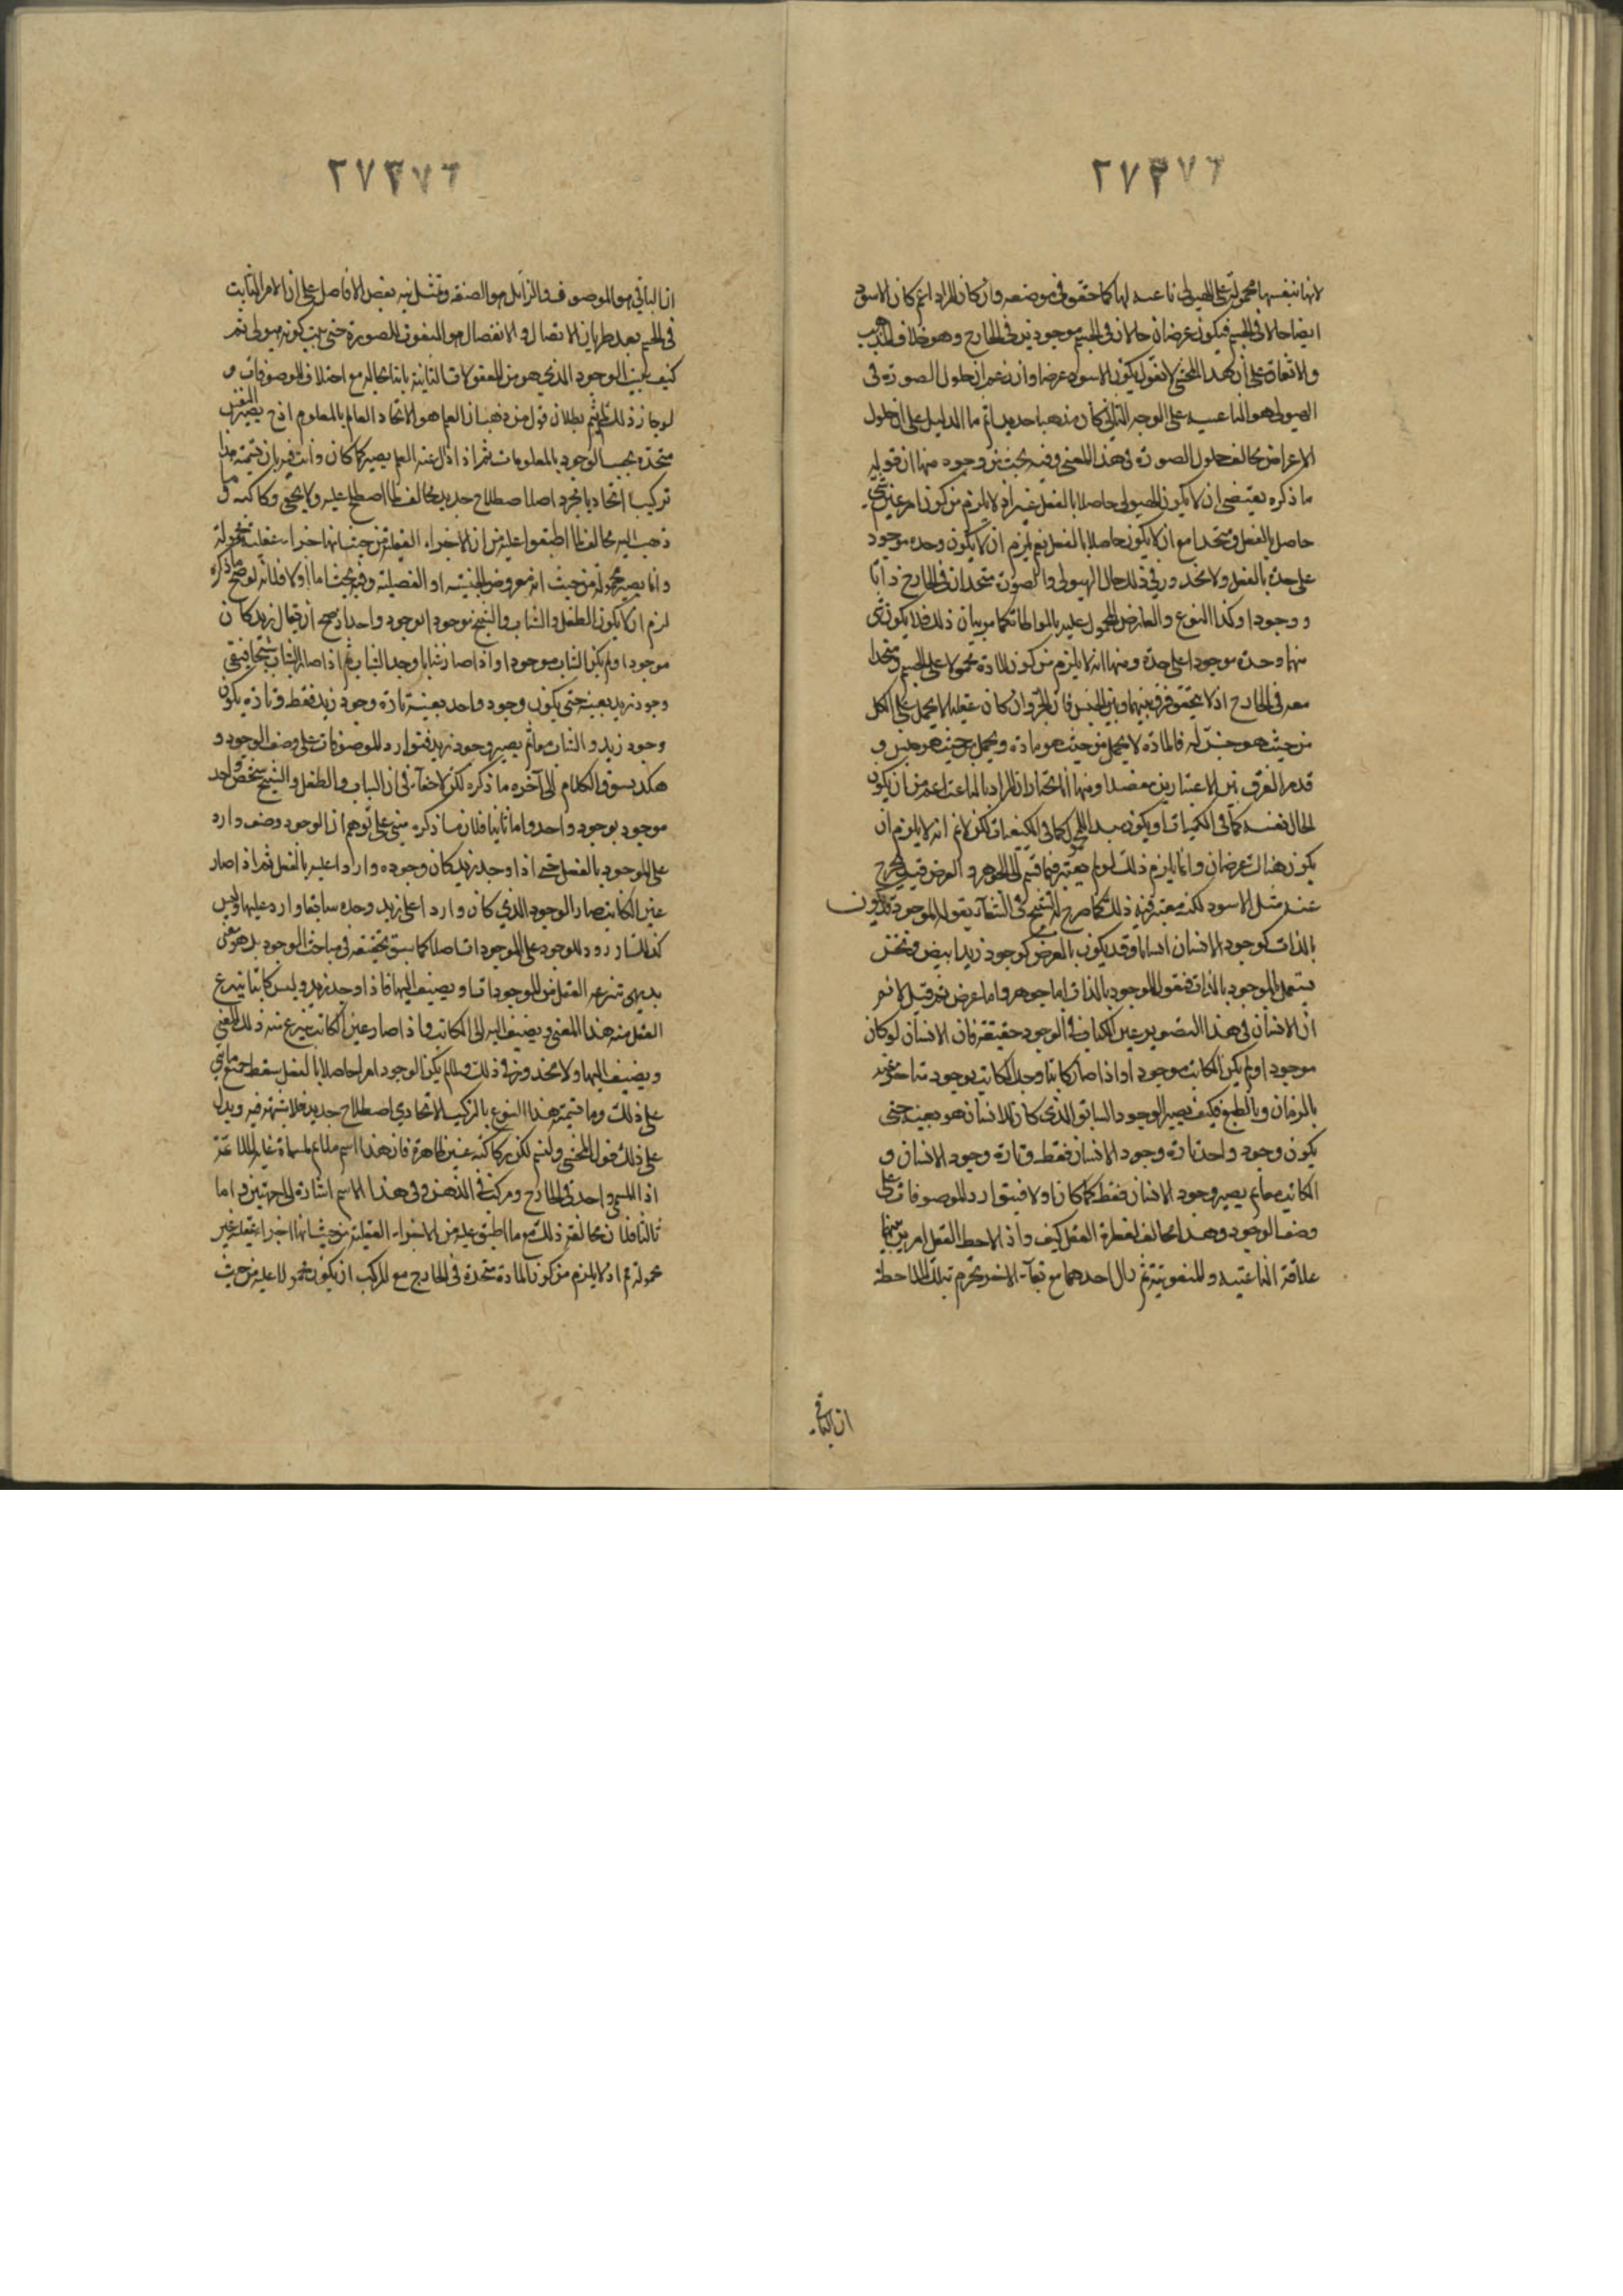 ٢٧٣٧٦
لانها بنفسها محمولة على الهيولى ناعتة لها كما حقق في موضعه وان كان المراد انه كان الاسود
ايضا حالا في الجسم فيكون عرضان حالان في الجسم موجودين في الخارج وهو خلاف المذهب
والاتفاق على ان بهذا المعنى لا نقول يكون الاسود عرضا وان زعم ان حلول الصورة في
الهيولى هو الناعتية على الوجه الثاني كان مذهبا جديدا ثم ما الدليل على ان حلول
الاعراض يخالف حلول الصورة في هذا المعنى وفيه بحث من وجوه منها ان قوله
ما ذكره يقتضي ان لا يكون الهيولى حاصلا بالفعل غير لازم لا يلزم من كون امر عين شيء
حاصل بالفعل ومتحدا مع ان لا يكون حاصلا بالفعل نعم يلزم ان لا يكون وحده موجود
على حدة بالفعل ولا محذور في ذلك حال الهيولى والصورة متحدان في الخارج ذاتا
ووجودا وكذا النوع والعارض المحمول عليه بالمواطاة كما مر بيان ذلك فلا يكون شيء
منهما وحده موجودا على حدة ومنها انه لا يلزم من كون المادة محمولا على الجسم ومتحدا
معه في الخارج اذ لا يتحقق فرق بينها وبين الجنس فان الجزء وان كان عقليا لا يحمل على الكل
من حيث هو جزء له فالمادة لا يحمل من حيث هو مادة ويحمل من حيث هو جنس و
قد مر الفرق بين الاعتبارين مفصلا ومنها انا نختار ان المراد بالناعت اعم من ان يكون
الحال نفسه كما في الكميات او يكون مبدأ المحمول كما في الكيفيات لكن لانم انه لا يلزم ان
يكون هناك عرضان وانما يلزم ذلك لو لم يعتبر فيما قسم الى الجوهر والعرض قيد يخرج
عنه مثل الاسود لكنه معتبر فيه ذلك كما صرح الشيخ في الشفاء بقوله الموجود قد يكون
بالذات كوجود الانسان انسانا وقد يكون بالعرض كوجود زيد ابيض ونحن
يشتمل الموجود بالذات فنقول الموجود بالذات اما جوهر واما عرض نعم قيل لانم
ان الانسان في هذا التصوير عين الكتاب في الوجود حقيقة فان الانسان لو كان
موجودا ولم يكن الكاتب موجودا واذا صار كاتبا وجد الكاتب بوجود متأخر عنه
بالزمان وبالطبع فكيف يصير الوجود السابق الذي كان للانسان هو بعينه حتى
يكون وجود واحد تارة وجود الانسان فقط وتارة وجود الانسان و
الكاتب معا ثم يصير وجود الانسان فقط كما كان اولا فيتوارد الموصوفات على
وصف الوجود وهذا مخالف لفطرة العقل كيف واذا لاحظ العقل امرين بينهما
علاقة الناعتية والمنعوتية ثم زال احدهما مع بقاء الاخر يجزم بتلك الملاحظة
ان الباقي
٢٧٣٧٦
ان الباقي هو الموصوف والزائل هو الصفة وتمثل فيه بعض الافاضل على ان الامر الثابت
في الجسم بعد طريان الاتصال والانفصال هو المنعوت للصورة حتى يثبت كونه هيولى ثم
كيف يثبت الوجود الذي هو من المعقولات الثانية ثابتا بحاله مع اختلاف الموصوفات و
لو جاز ذلك لم يتم بطلان قول من ذهب ان العلم هو الاتحاد العالم بالمعلوم اذ ح يصير النفس
متحدة بحسب الوجود بالمعلومات ثم اذا زال عنه العلم يصير كما كان وانت خبير بان تسمية هذا
تركيبا اتحاديا مجرد اصطلاح جديد مخالف لما اصطلح عليه ولا يخفى ركاكته و ما
ذهب اليه مخالف لما اطبقوا عليه من ان الاجزاء العقلية من حيث انها اجزاء عقلية محمولة
وانما يصير محمولة من حيث انه معروض الجنسية او الفصلية وفيه بحث اما اولا فلانه لو صح ما ذكره
لزم ان لا يكون الطفل والشاب والشيخ موجودا بوجود واحد اذ يصح ان يقال زيد كان
موجودا ولم يكن الشاب موجودا واذا صار شابا وجد الشاب ثم اذا صار الشاب شيخا فيبقى
وجود زيد بعينه حتى يكون وجود واحد بعينه تارة وجود زيد فقط وتارة يكون
وجود زيد والشاب معا ثم يصير وجود زيد فيتوارد الموصوفات على وصف الوجود و
هكذا يسوق الكلام الى آخر ما ذكره لكن لا خفاء في ان الشاب والطفل والشيخ شخص واحد
موجود بوجود واحد واما ثانيا فلان ما ذكره مبني على توهم ان الوجود وصف وارد
على الموجود بالفعل حتى اذا وجد زيد كان وجوده واردا عليه بالفعل ثم اذا صار
عين الكاتب صار الوجود الذي كان واردا على زيد وحده سابقا وارد عليهما وليس
كذلك اذ لا ورود للوجود على الموجودات اصلا كما سبق تحقيقه في مباحث الوجود بل هو معنى
بديهي ينتزعه العقل من الموجودات ويضيف اليها فاذا وجد زيد وليس كاتبا ينتزع
العقل منه هذا المعنى ويضيف اليه لا الى الكاتب واذا صار عين الكاتب ينتزع منه ذلك المعنى
ويضيف اليهما ولا محذور في ذلك ولما لم يكن الوجود امرا حاصلا بالفعل سقط جميع ما بني
على ذلك وما تسمية هذا النوع بالتركيب الاتحادي اصطلاح جديد فلا شبهة فيه ويدل
على ذلك قول المحشي ولنسم لكن ركاكته غير ظاهرة فان هذا اسم ملائم لمسماه غاية الملائمة
اذ المسمى واحد في الخارج ومركب في الذهن وفي هذا الاسم اشارة الى الجهتين واما
ثالثا فلان مخالفة ذلك مع ما اطبق عليه من الاجزاء العقلية من حيث انها اجزاء عقلية غير
محمولة ثم اذ لا يلزم من كون المادة متحدة في الخارج مع المركب ان يكون محمولا عليه من حيث